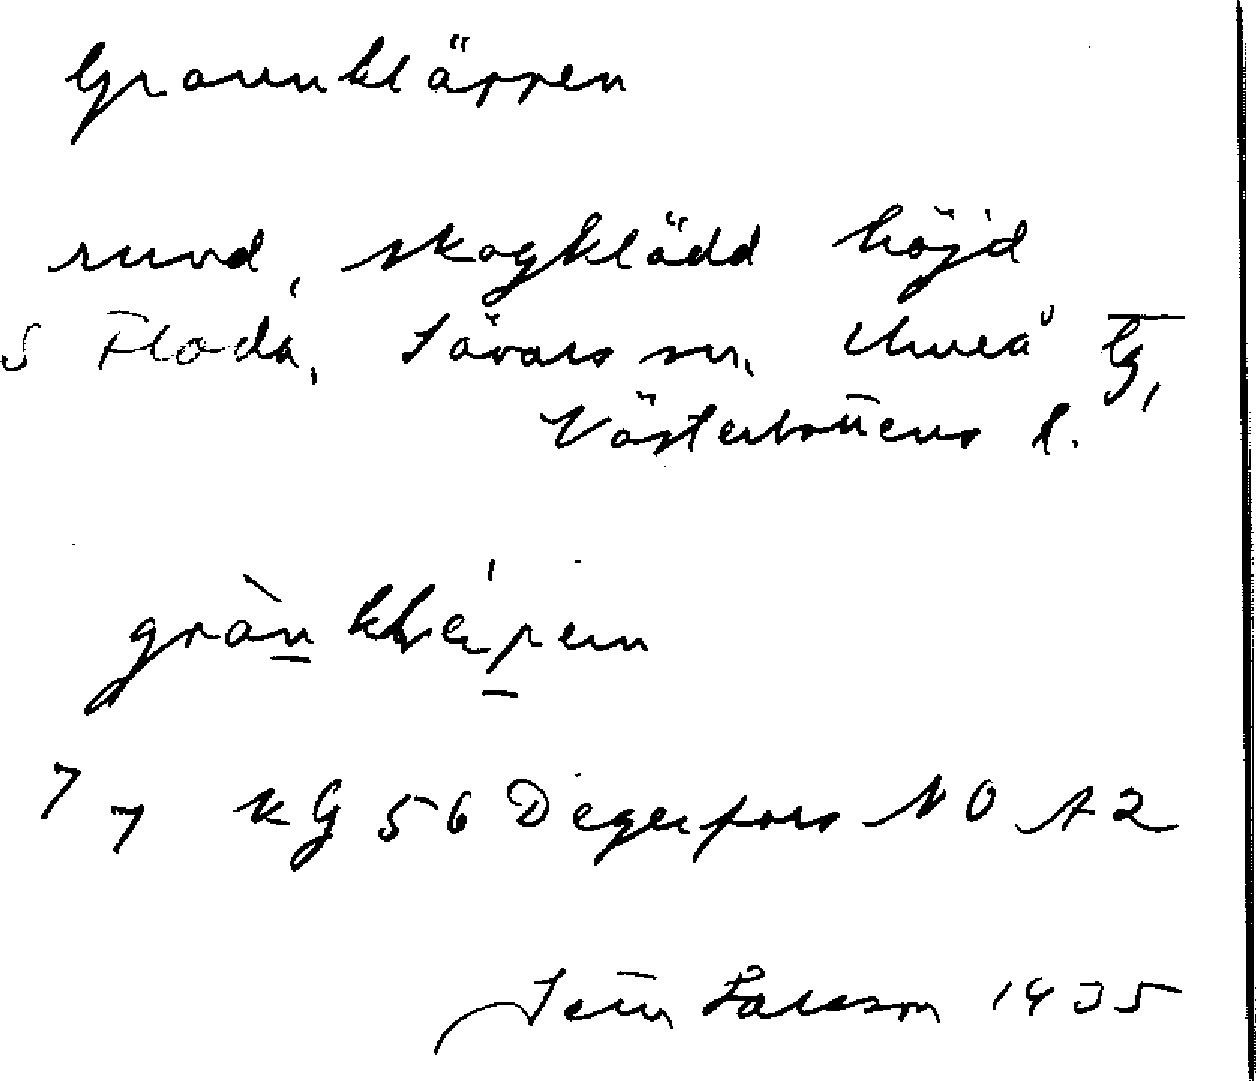 Grannkläppen
rund, skogklädd höjd
S Floda, Sävars sn, Umeå tg,
Västerbottens l.
gràn kleṕen
77 KG 56 Degerfors NO A2
Larsson 1935